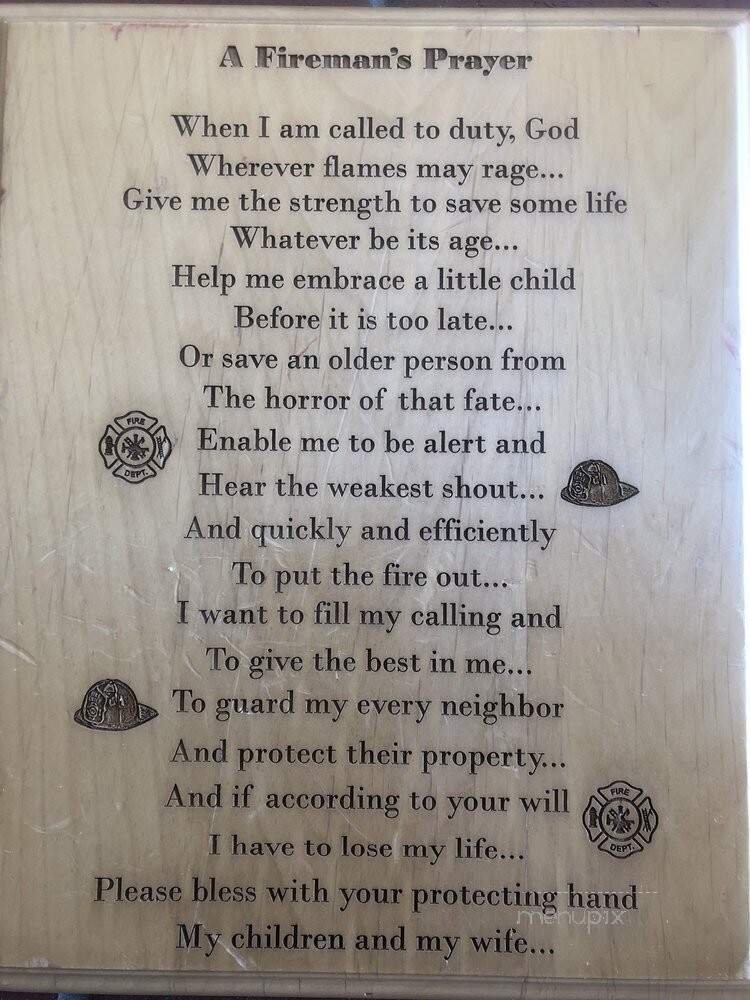 A Fireman's Prayer
When I am called to duty, God
Wherever flames may rage...
Give me the strength to save some life
Whatever be its age...
Help me embrace a little child
Before it is too late...
Or save an older person from
The horror of that fate...
FIRE
DEPT.
Enable me to be alert and
Hear the weakest shout...
And quickly and efficiently
To put the fire out...
I want to fill my calling and
To give the best in me...
To guard my every neighbor
And protect their property...
And if according to your will
FIRE
DEPT.
I have to lose my life...
Please bless with your protecting hand
menupix
My children and my wife...